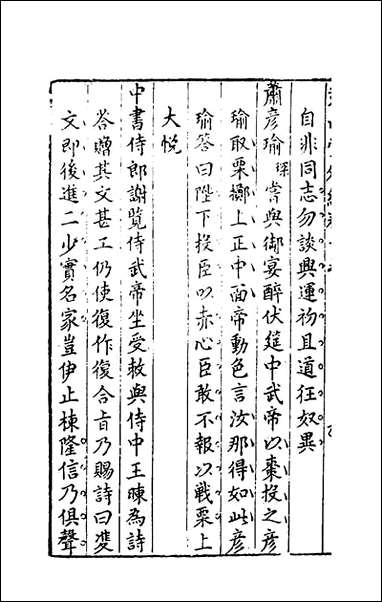 自非同志勿談興運初且道狂奴異
蕭彥瑜琛嘗與御宴醉伏筵中武帝以棗投之彥
瑜取栗擲上正中面帝動色言汝那得如此彥
瑜答曰陛下投臣以赤心臣敢不報以戰栗上
大悅
中書侍郎謝覽侍武帝坐受敕與侍中王暕為詩
答贈其文甚工仍使復作復合旨乃賜詩曰雙
文即後進二少實名家豈伊止棟隆信乃俱聲